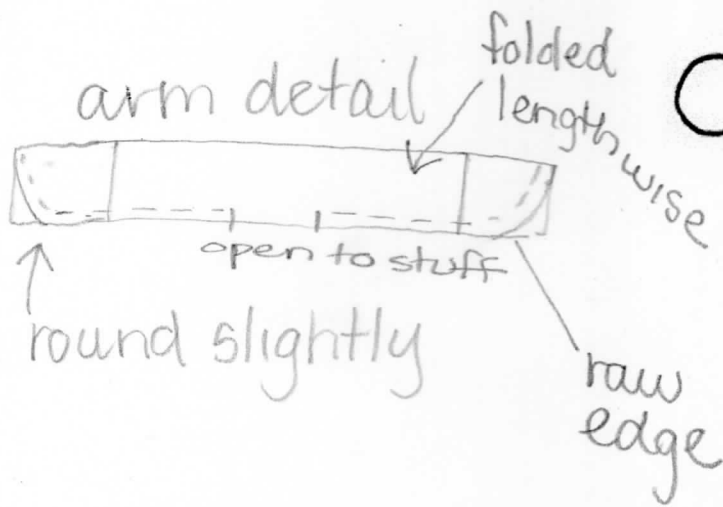 arm detail
folded
lengthwise
open to stuff
round slightly
raw
edge